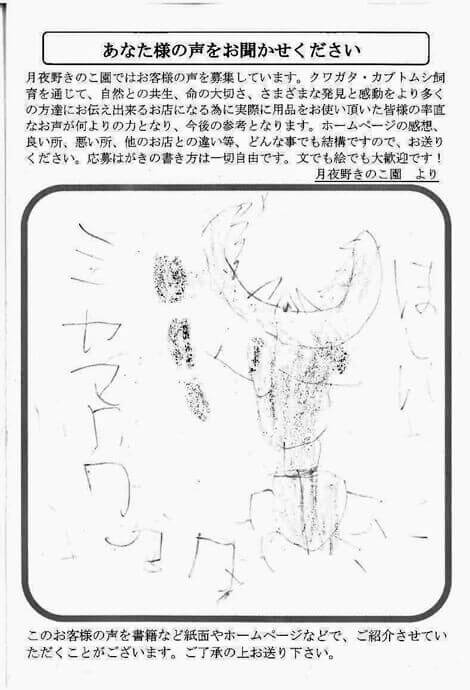 あなた様の声をお聞かせください
月夜野きのこ園ではお客様の声を募集しています。クワガタ・カブトムシ飼
育を通じて、自然との共生、命の大切さ、さまざまな発見と感動をより多く
の方達にお伝え出来るお店になる為に実際に用品をお使い頂いた皆様の率直
なお声が何よりの力となり、今後の参考となります。ホームページの感想、
良い所、悪い所、他のお店との違い等、どんな事でも結構ですので、お送り
ください。応募はがきの書き方は一切自由です。文でも絵でも大歓迎です！
月夜野きのこ園　より
ほしい
ミヤマ
このお客様の声を書籍など紙面やホームページなどで、ご紹介させてい
ただくことがございます。ご了承の上お送り下さい。